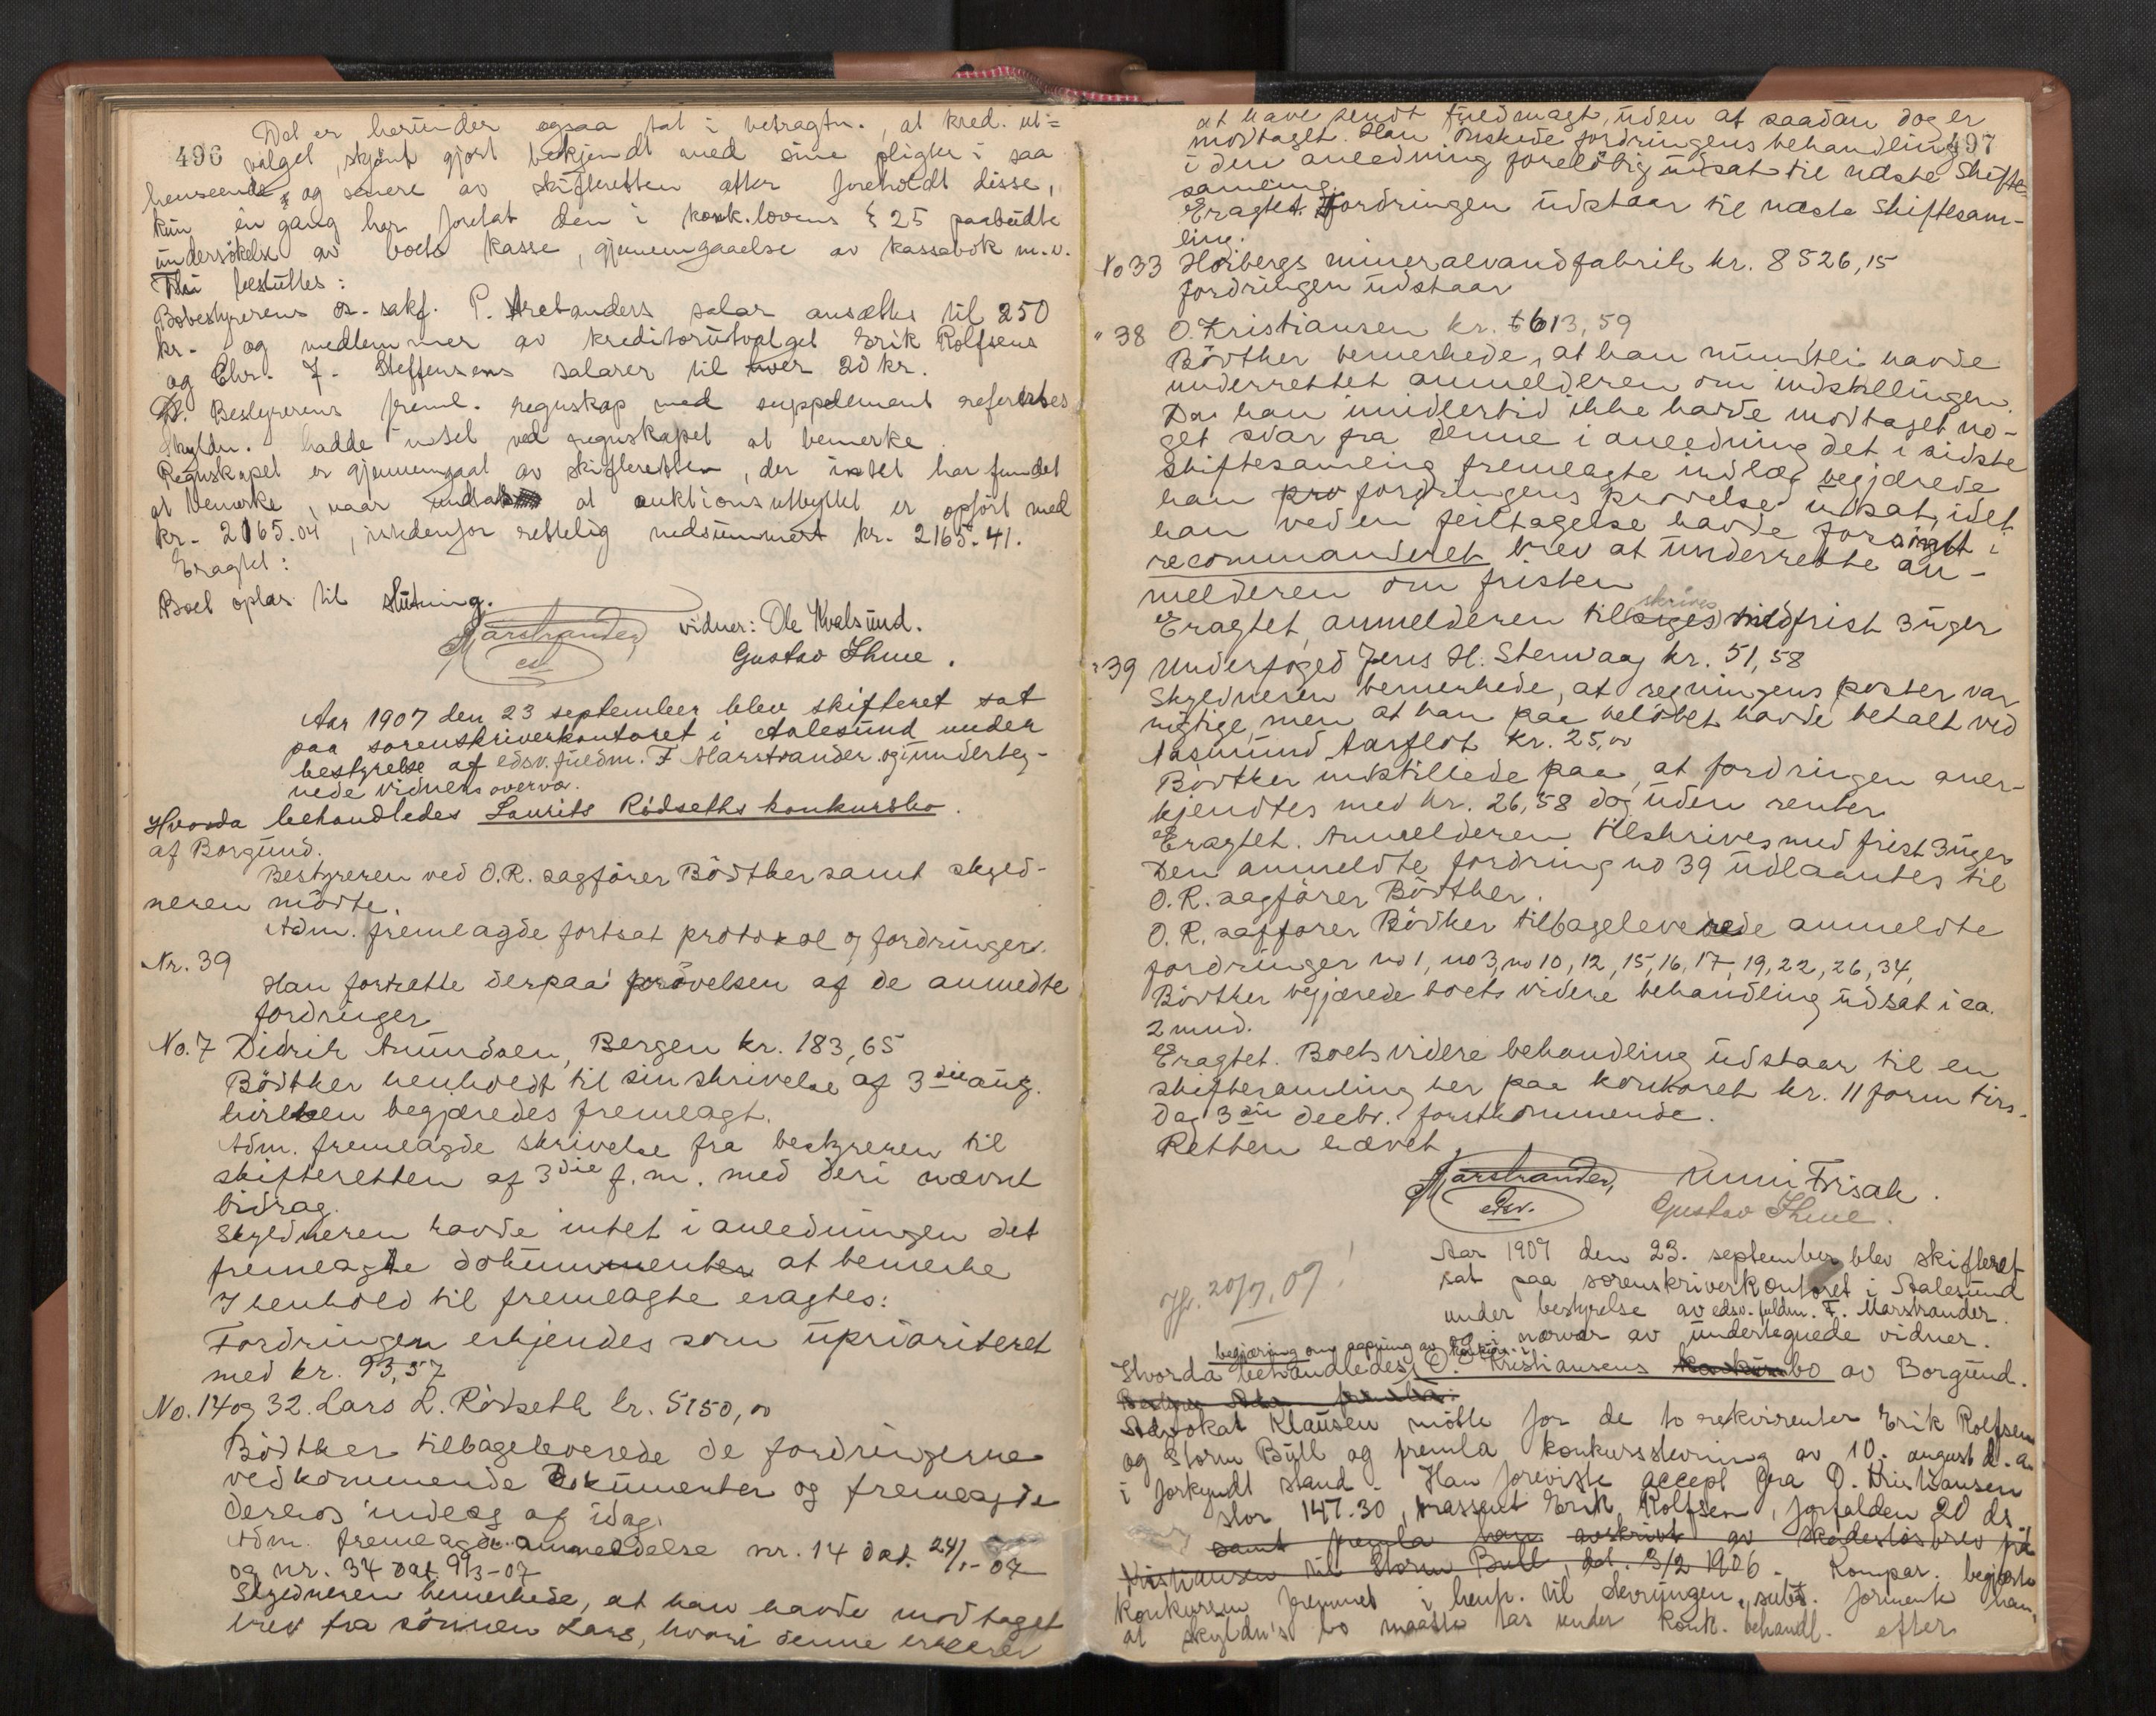 496
Det er herunder ogsaa tat i betragtn., at kred. ut=
valget, skjönt gjort bekjendt med sine pligter i saa
henseende og senere av skifteretten atter foreholdt disse,
kun én gang har foretat den i konk.lovens § 25 paabudte
undersökelse av boets kasse, gjennemgaaelse av kassabok m.v.
Thi besluttes:
Bobestyrerens o.r. sakf. P. Arctanders salar ansættes til 250
kr. og medlemmer av kreditorutvalget Erik Rolfsens
og Chr. F. Steffensens salarer til hver 20 kr.
Bestyrerens freml. regnskap med supplement refertes
Skyldn. hadde intet ved regnskapet at bemerke.
Regnskapet er gjennemgaat av skifteretten, der intet har fundet
at bemerke, naar undtas at auktionsutbyttet er opfört med
kr. 2165.04, istedenfor rettelig nedsummert kr. 2165.41.
Eragtet:
Boet optas til slutning.
Marstrander
es.
vidner: Ole Kvalsund.
Gustav Thue.
Aar 1907 den 23 september blev skifteret sat
paa sorenskriverkontoret i Aalesund under
bestyrelse af edsv. fuldm. F Marstrander og i underteg-
nede vidners overvær.
Hvorda behandledes Laurits Rödseths konkursbo.
af Borgund.
Bestyreren ved O.R. sagförer Bödtker samt skyld-
neren mödte.
Adm. fremlagde fortsat protokol og fordringer.
Nr. 39
Han fortsatte derpaa prövelsen af de anmeldte
fordringer
No. 7 Didrik Amundsen, Bergen kr. 183,65
Bödtker henholdt til sin skrivelse af 3die aug.
hvilken begjæredes fremlagt.
Adm. fremlagde skrivelse fra bestyreren til
skifteretten af 3die f.m. med deri nævnt
bidrag.
Skyldneren havde intet i anledningen det
fremlagte dokumenter at bemerke
I henhold til fremlagte eragtes:
Fordringen erkjendes som uprioriteret
med kr. 93,57
No. 14 og 32. Lars L. Rödseth kr. 5150,00
Bödtker tilbageleverede de fordringerne
vedkommende dokumenter og fremlagde
derhos indlæg af idag.
Adm. fremlagde anmeldelse nr. 14 dat. 24/1-07
og nr. 34 dat. 9/3-07
Skyldneren bemerkede, at han havde modtaget
brev fra sönnen Lars, hvori denne erklærer
at have sendt fuldmagt, uden at saadan dog er
modtaget. Han önskede fordringens behandling
497
i den anledning forelöbig udsat til næste skifte-
samling.
Eragtet Fordringen udstaar til næste skiftesam-
ling.
No 33 Hoibergs mineralvandfabrik kr. 8526,15
fordringen udstaar
" 38 O. Kristiansen kr. 613,59
Bödtker bemerkede, at han mundtli havde
underrettet anmelderen om indstillingen.
Da han imidlertid ikke havde modtaget no-
get svar fra denne i anledning det i sidste
skiftesamling fremlagte indlæg begjærede
han pro fordringens prövelse udsat, idet
han ved en feiltagelse havde forsömt i
recommanderet brev at underrette an-
melderen om fristen
skrives
Eragtet, anmelderen tilsiges med frist 3 uger
" 39 Underfoged Jens H. Stenvaag kr. 51,58
Skyldneren bemerkede, at regningens poster var
rigtige, men at han paa belöbet havde betalt ved
Rasmund Aarflot kr. 25,00
Bödtker indstillede paa, at fordringen aner-
kjendtes med kr. 26,58 dog uden renter
Eragtet. Anmelderen tilskrives med frist 3 uger
Den anmeldte fordring no 39 udlaantes til
O.R. sagförer Bödtker.
O.R. sagförer Bödker tilbageleverede anmeldte
fordringer no 1, no 3, no 10, 12, 15, 16, 17, 19, 22, 26, 34,
Bödtker begjærede boets videre behandling udsat i ca.
2 mnd.
Eragtet. Boets videre behandling udstaar til en
skiftesamling her paa kontoret kr. 11 form tirs-
dag 3die decbr. förstkommende.
Retten hævet
Marstrander,
edsv.
Unni Frisak.
Gustav Thue.
20/9.09!
Aar 1907 den 23. september blev skifteret
sat paa sorenskriverkontoret i Aalesund
under bestyrelse av edsv. fuldm. F. Marstrander.
og i nærvær av undertegnede vidner.
begjæring om aapning av konkurs i
Hvorda behandledes O. Kristiansens konkursbo av Borgund.
Advokat Klausen mötte for de to rekvirenter Erik Rolfsen
og Storm Bull og fremla konkursstevning av 10. august d.a.
i forkyndt stand. Han foreviste accept fra O. Kristiansen
stor 147.30, trassent Erik Rolfsen, forfalden 20 ds.
samt fremla han avskrivt av skadeslösbrev fra
Kristiansen til Storm Bull, dat. 3/2 1906. Kompar. begjærte
konkursen fremmet i henh. til stevningen, subs. formente han,
at skyldn's bo maatte tas under konk. behandl. efter